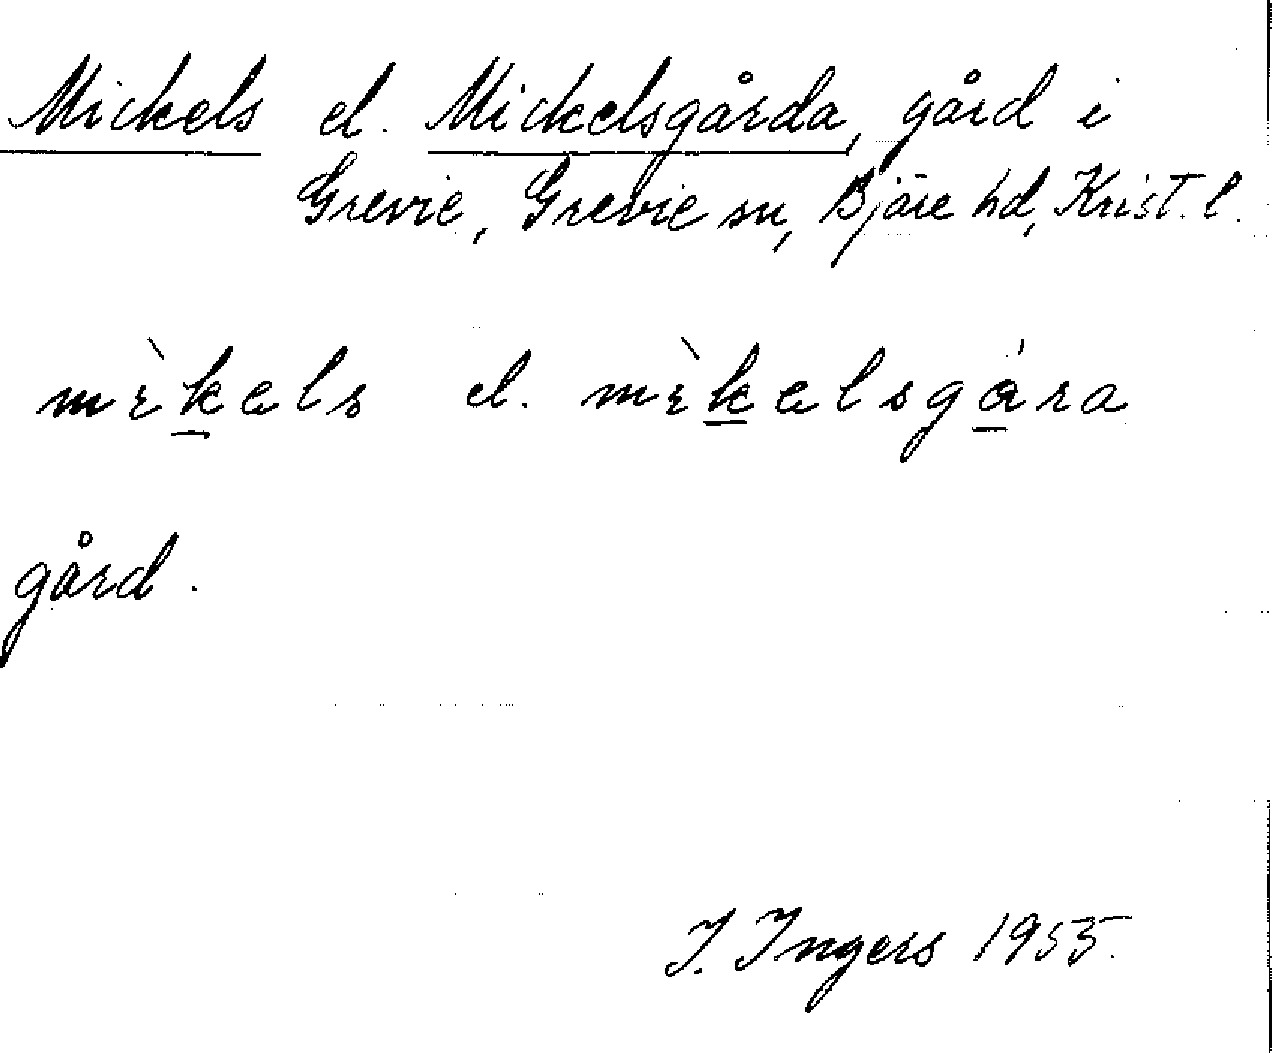 Mickels el. Mickelsgårda, gård i
Grevie, Grevie sn, Bjäre hd, Krist. l.
mìkels el. mìkelsgára
gård.
I. Ingers 1955.